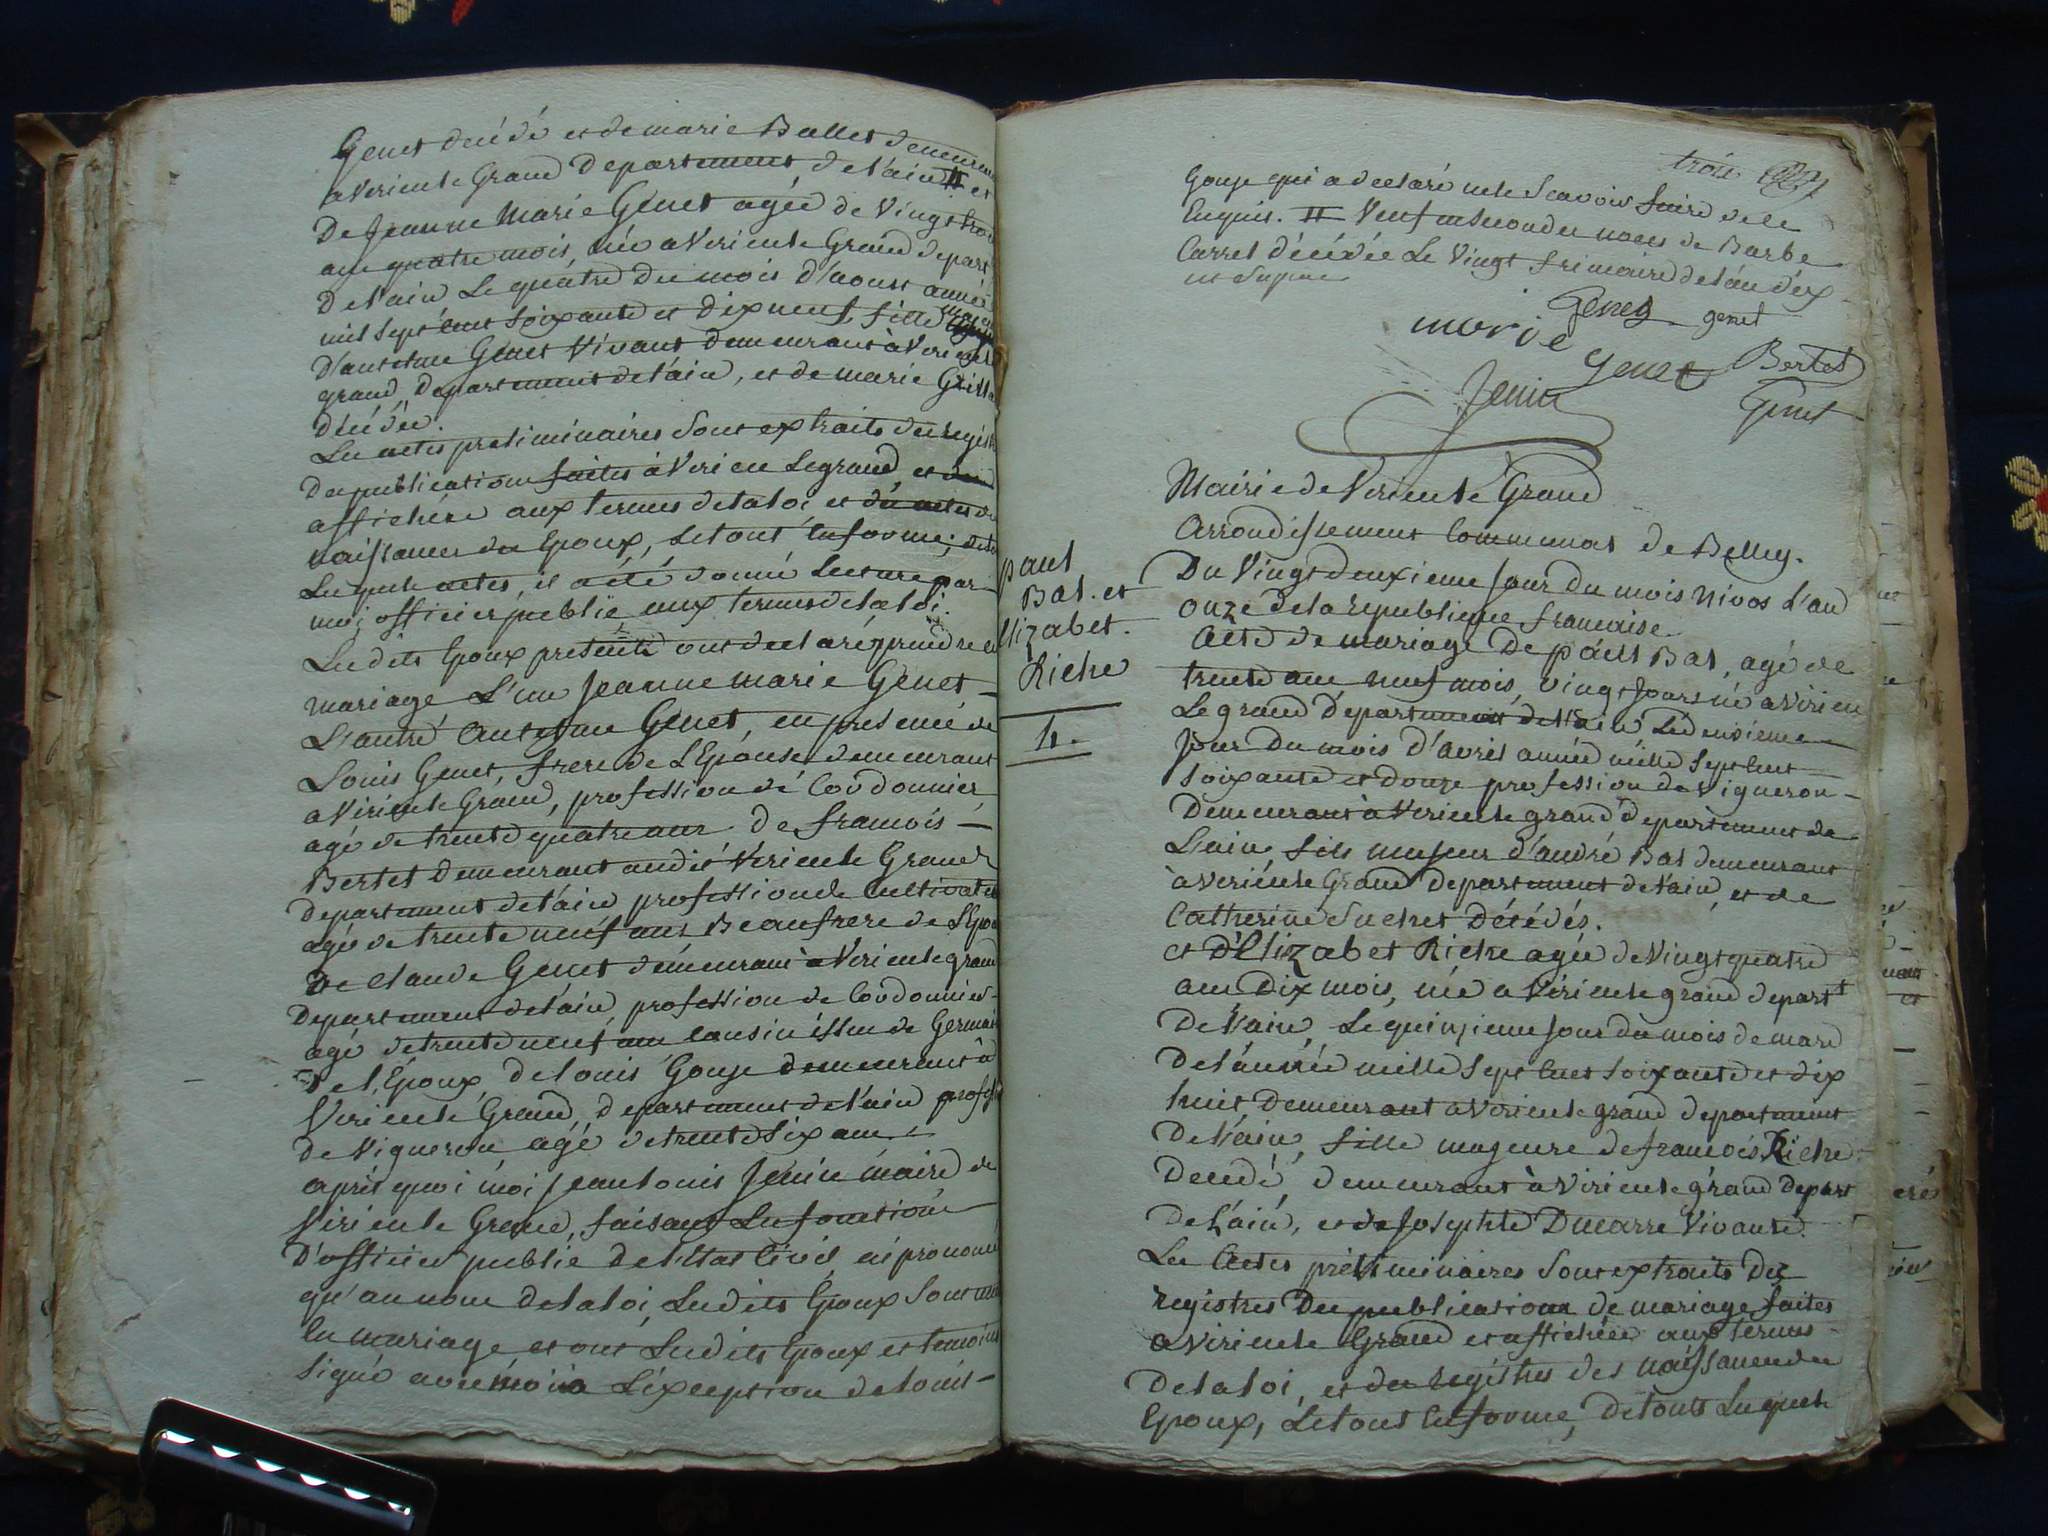 Genet décédé et de marie Ballet demeuran
a Virieu le Grand Departement de l'ain # et
De Jeanne Marie Genet agée de Vingt trois
ans quatre mois, née a Virieu le Grand depart
De l'ain Le quatre du mois d'aoust année
mil sept cent soixante et dix neuf, fille majeu
d'Antelme Genet Vivant demeurant à Virieu le
grand, departement de l'ain, et de marie Grilla
décédée.
Les actes preliminaires sont extraits des regist
Des publications faites à Virieu Legrand, et
affichées aux termes de la loi et des actes de
naissances des Epoux, Le tout en forme, de
Lesquels actes, il a été donné Lecture par
moi officier public, aux termes de la loi.
Les dits Epoux presents ont declaré prendre en
mariage L'un Jeanne marie Genet
L'autre Antelme Genet, en presence de
Louis Genet, frere de L'Epouse demeurant
a Virieu le Grand, profession de Cordonnier
agé de trente quatre ans de françois
Bertet Demeurant audit Virieu le Grand
departement de l'ain profession de Cultivateu
agé de trente neuf ans Beaufrere de L'Epou
De Claude Genet demeurant à Virieu le grand
Departement de l'ain, profession de Cordonnier
agé de trente neuf ans cousin issu de Germai
de L'Epoux, De Louis Gouje demeurant à
Virieu le Grand, departement de l'ain profess
de Vigneron agé de trente six ans
après quoi moi Jean Louis Jenin maire de
Virieu le Grand, faisant Les fonctions
D'officier public de l'Etat Civil, ai prononcé
qu'au nom de la loi, Les dits Epoux sont unis
En mariage et ont Les dits Epoux et temoins
signé avec moi à L'exception de Louis
trois
Gouje qui a declaré ne le scavoir faire de ce
Enquis. # Veuf en secondes noces de Barbe
Carrel décédée Le Vingt frimaire de l'an dix
Genet genet
marie
genet Bertet
Jenin Genet
Mairie de Virieu le Grand
Arrondissement Communal de Belley.
paul
Bal. et
Elizabet.
Riche
4.
Du Vingt deuxieme Jour du mois Nivos L'an
onze de la republique francaise
Acte de mariage De paul Bal, agé de
trente ans neuf mois, vingt Jours né a Virieu
Le grand departement de l'ain Le deusieme
Jour du mois d'avril année mille sept cent
soixante et douze profession de Vigneron
Demeurant à Virieu le grand departement de
L'ain, fils majeur d'andré Bal demeurant
à Virieu le Grand departement de l'ain, et de
Catherine Suchet Décédés.
et d'Elizabet Riche agée de Vingt quatre
ans Dix mois, née a Virieu le grand depart.t
De l'ain, Le quinzieme Jour du mois de mars
De l'année mille sept cent soixante et dix
huit, Demeurant a Virieu le grand departement
De l'ain, fille majeure de françois Riche
Décédé, demeurant à Virieu le grand depart
De L'ain, et de Josephte Ducarre Vivante.
Les Actes préliminaires sont extraits des
registres Des publications de mariage faites
a Virieu le Grand et affichées aux termes
De la loi, et des registres des naissances des
Epoux, Le tout En forme, De touts Lesquels